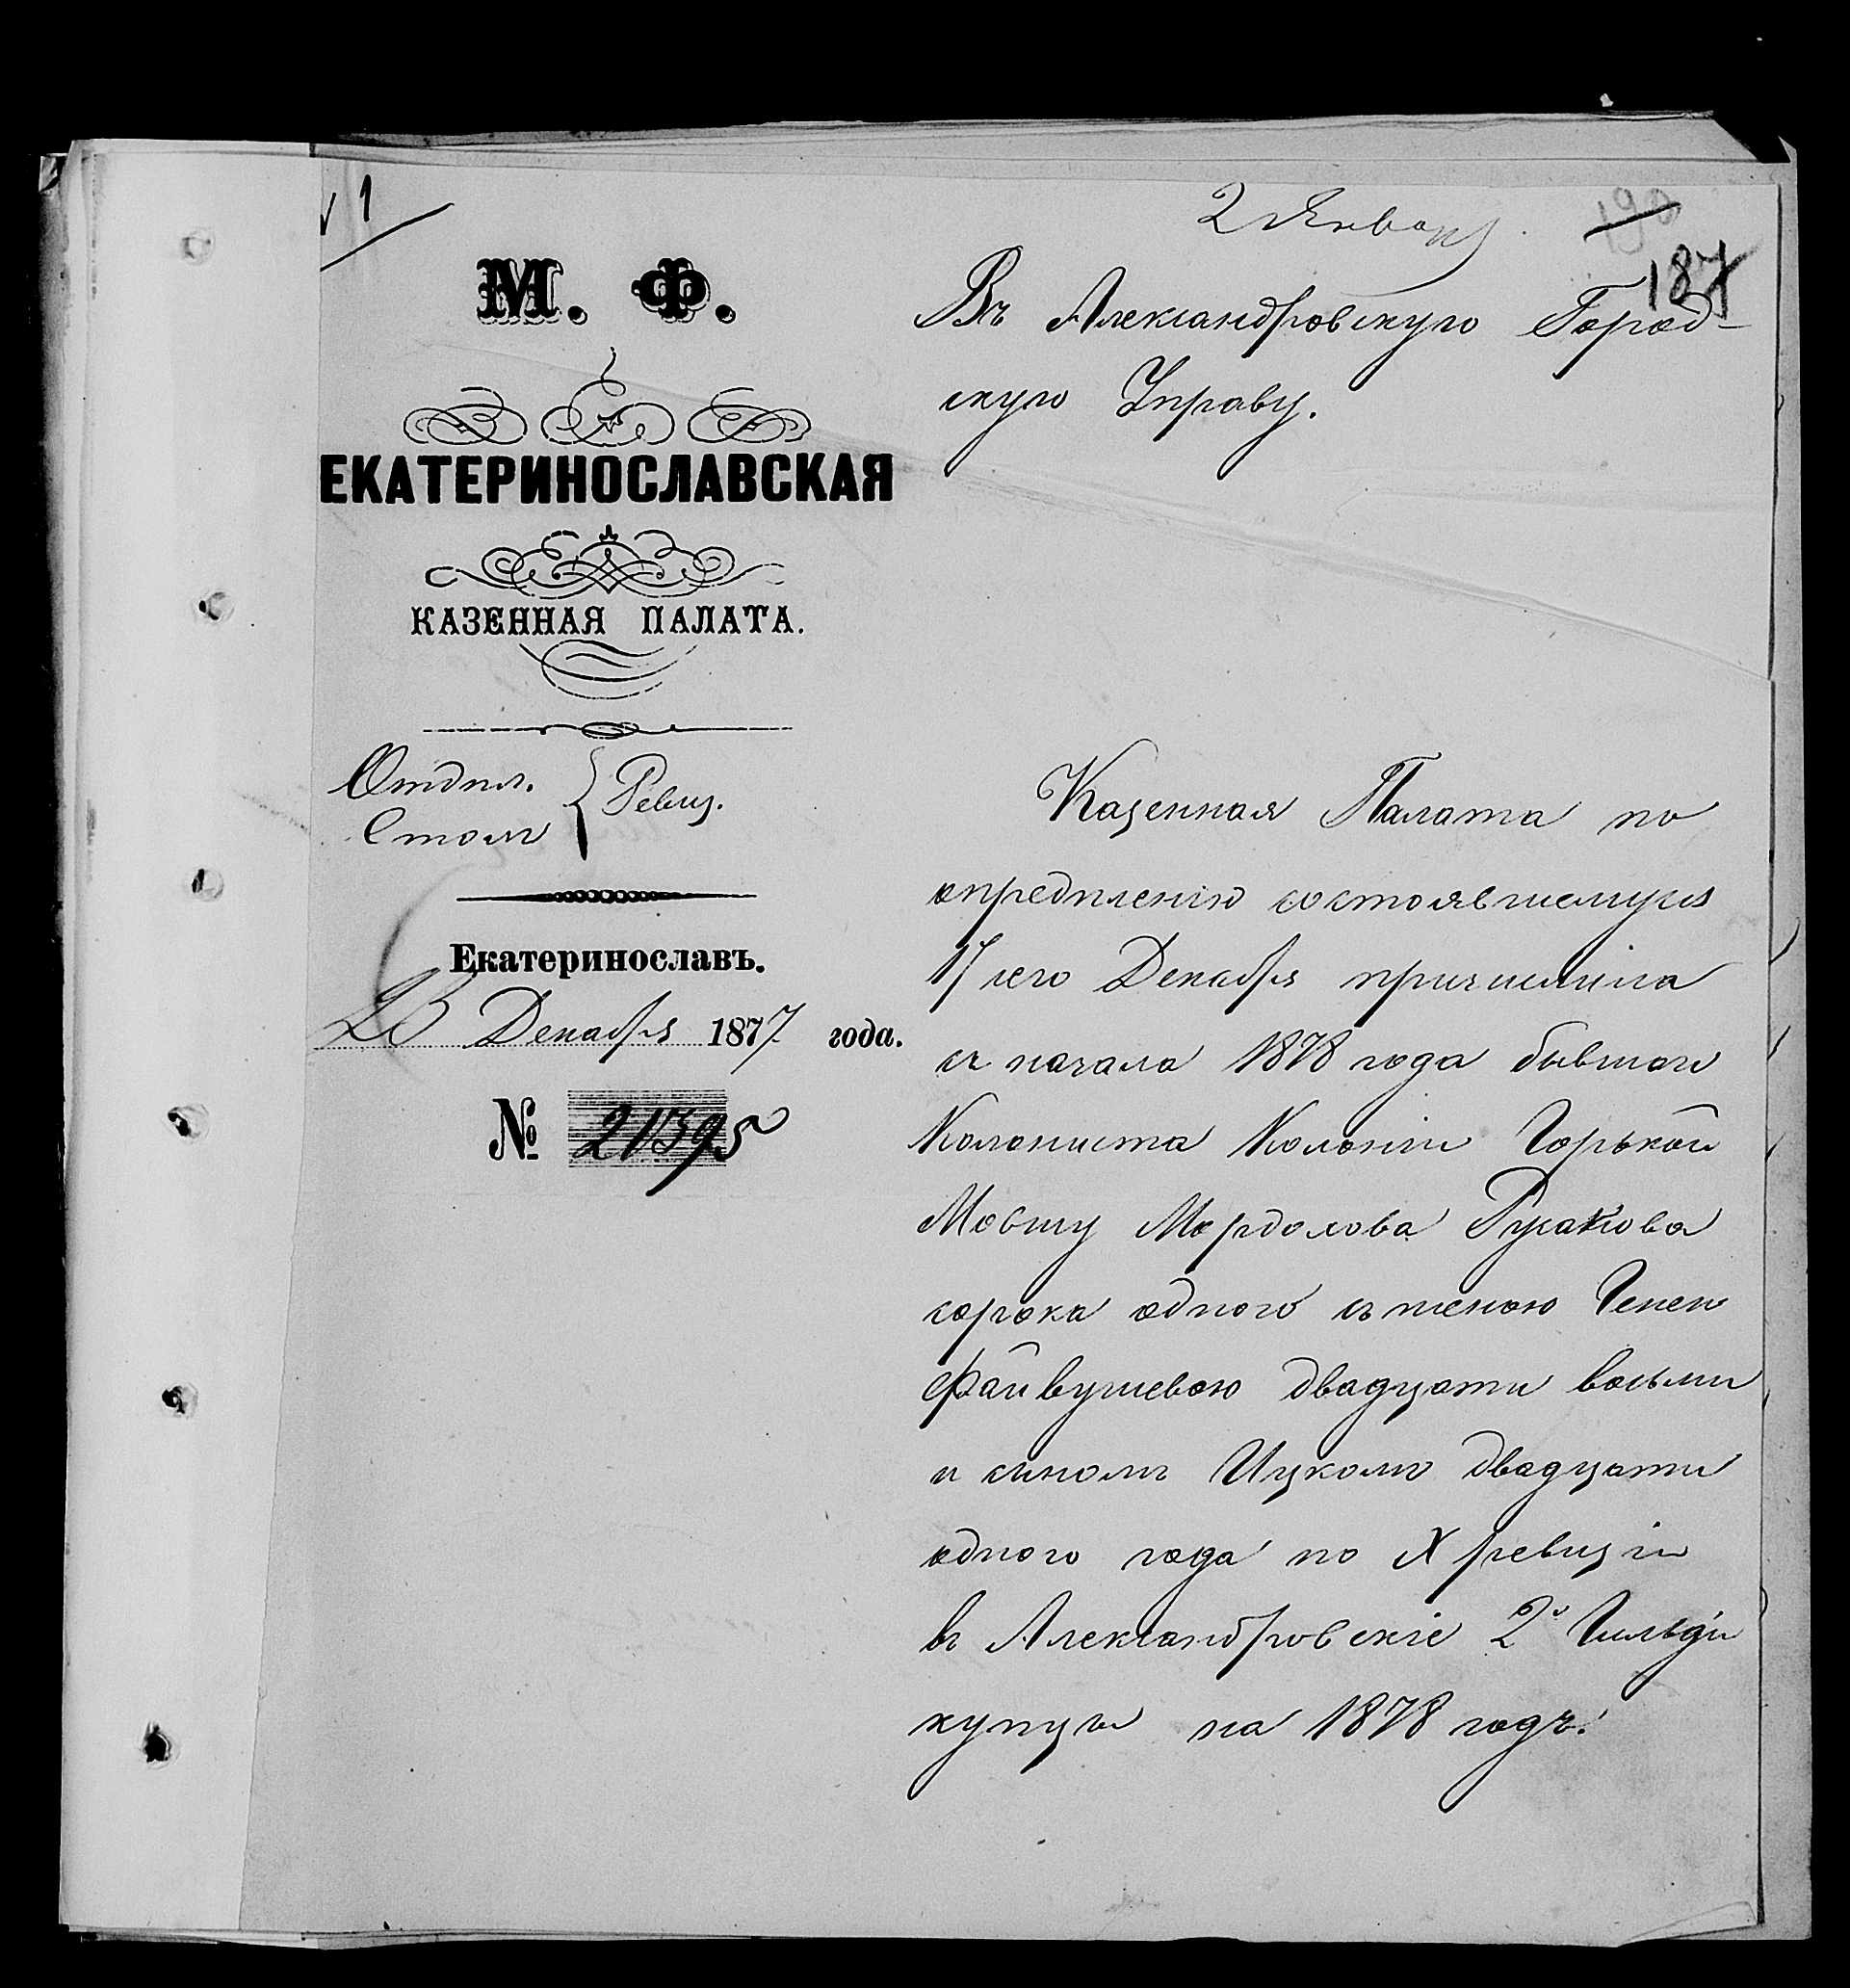 1
2 Января
190
187
М. Ф.
ЕКАТЕРИНОСЛАВСКАЯ
КАЗЕННАЯ ПАЛАТА.
Отдѣл.
Столъ
Ревиз.
Екатеринославъ.
Декабря 1877 года.
№ 21395
Въ Александровскую Город-
скую Управу.
Казенная Палата по
опредѣленію состоявшемуся
17 сего Декабря причислила
съ начала 1878 года бывшаго
Колониста Колоніи Горькой
Мовшу Мордолова Русакова
сорока одного съ женою Генею
Файвушевою двадцати восьми
и сыномъ Ицкомъ двадцати
одного года по X ревизіи
въ Александровскіе 2й Гильдіи
купцы на 1878 годъ.